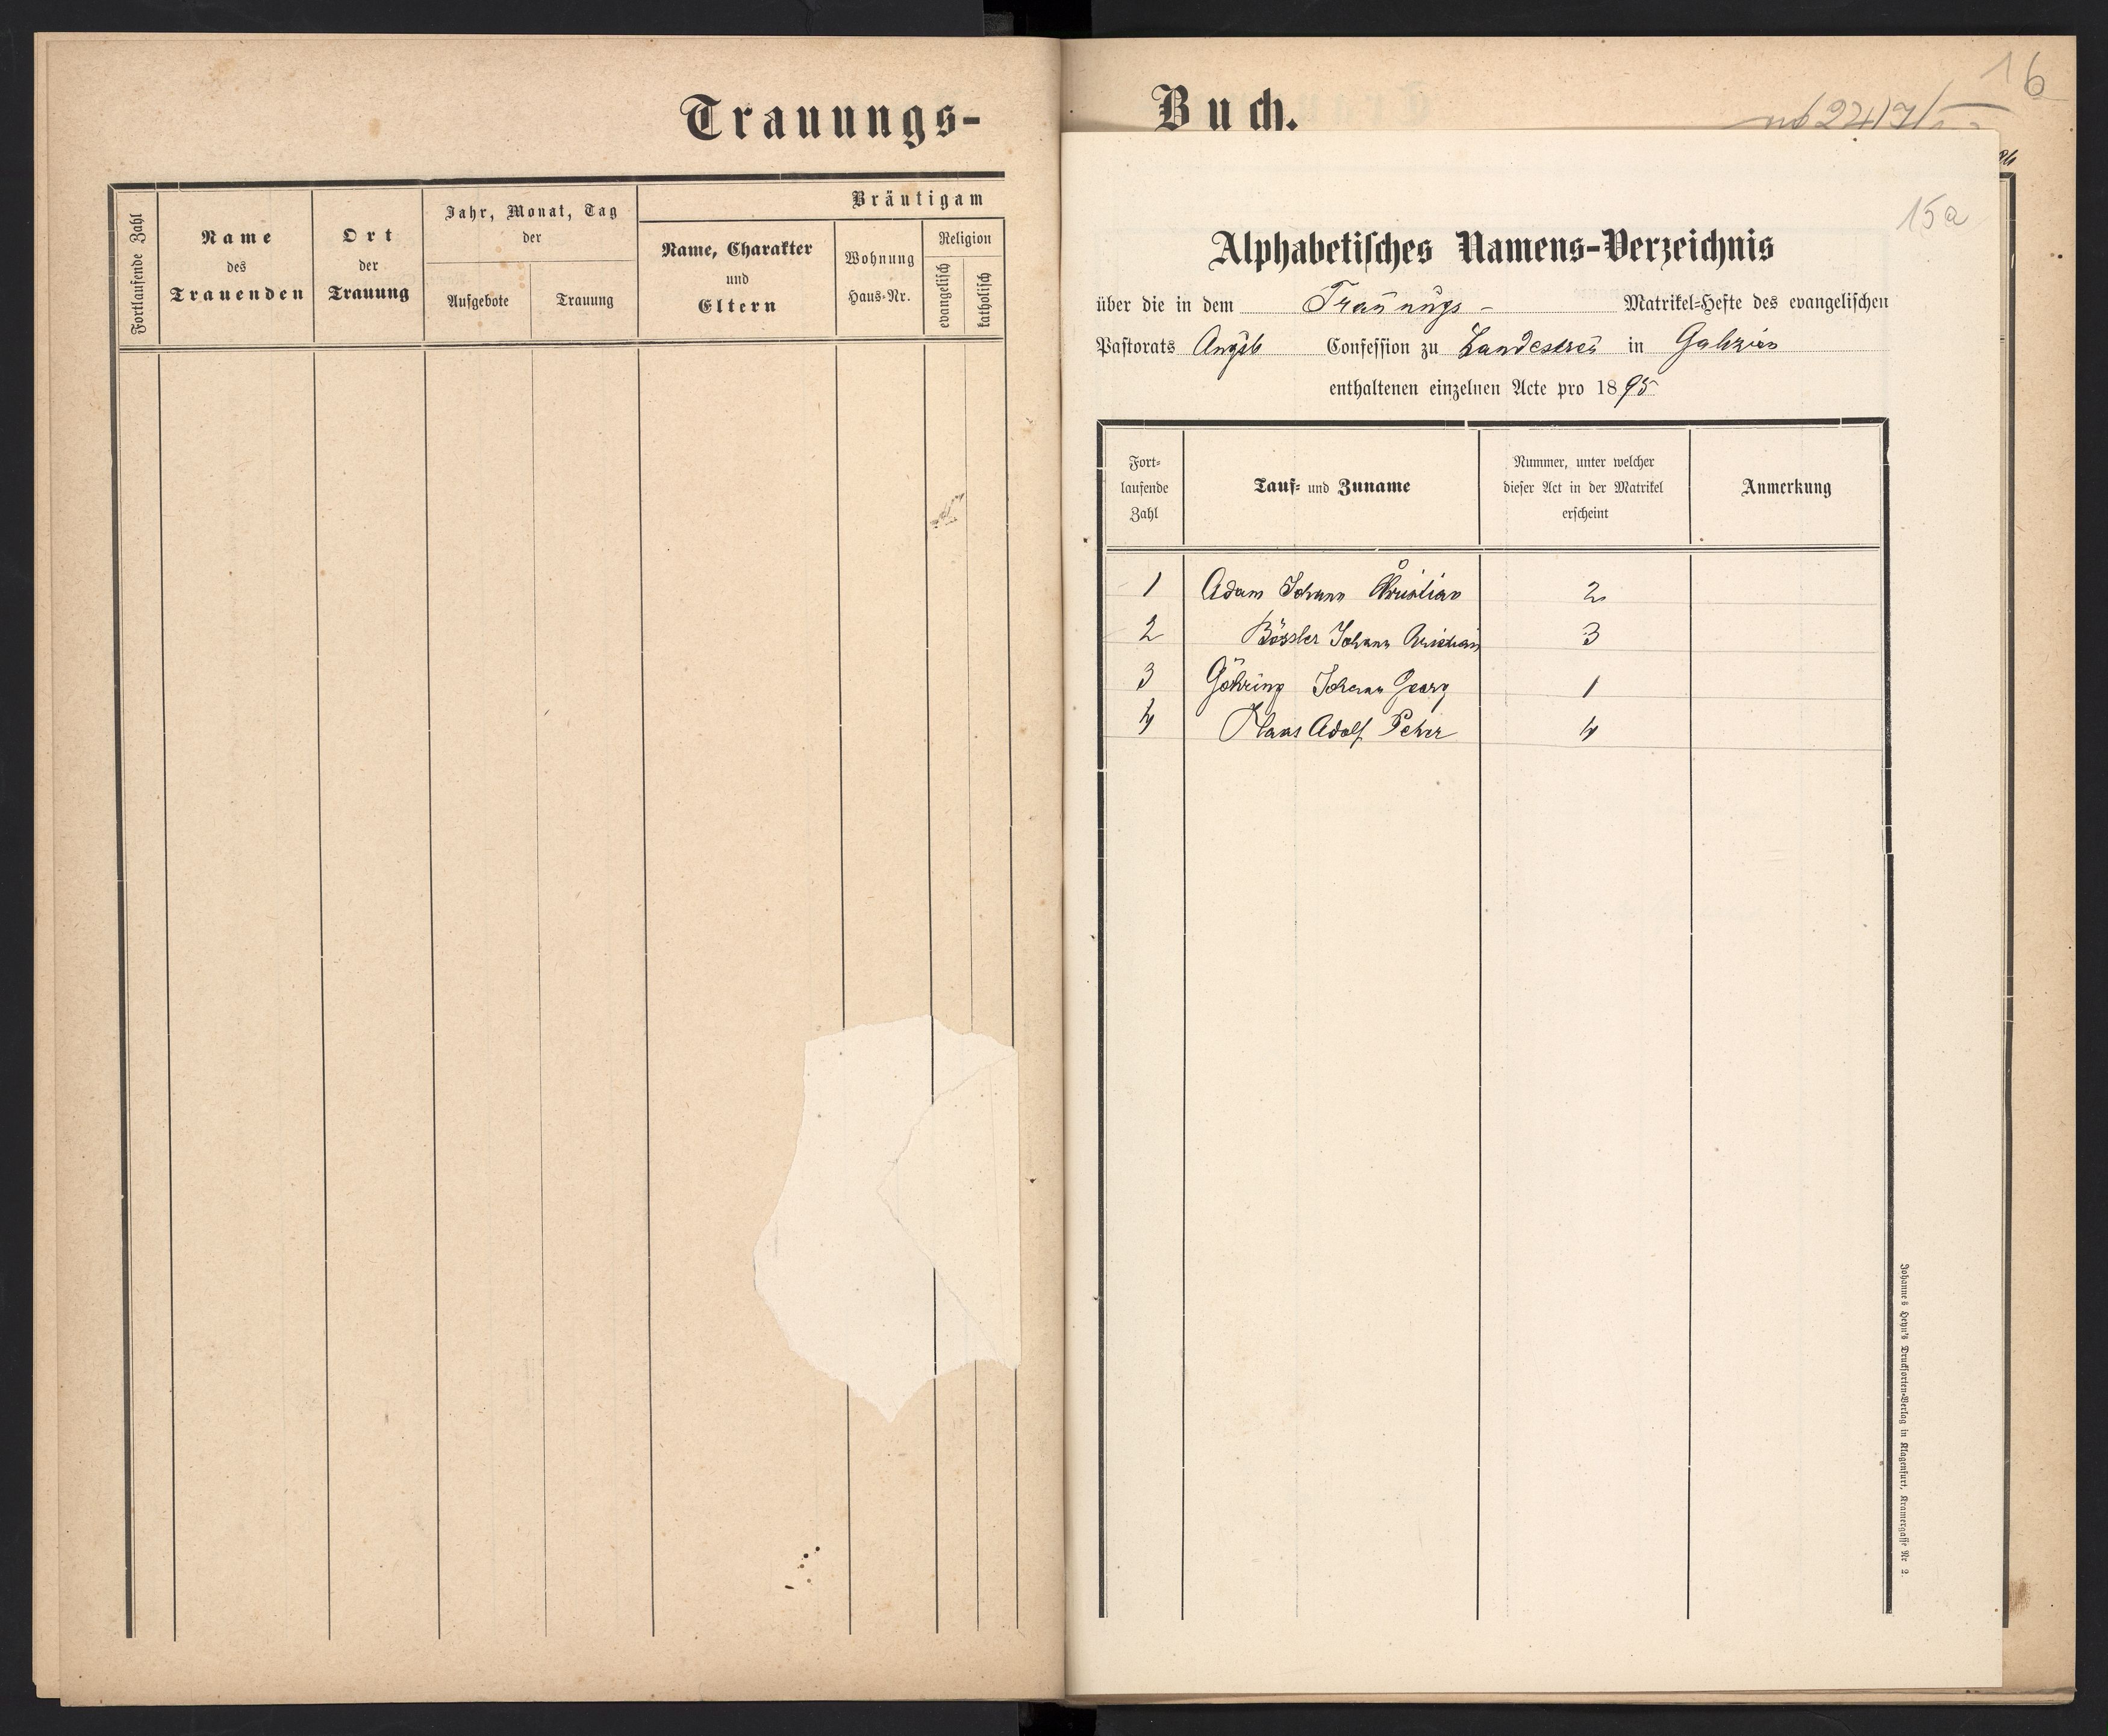 Trauungs-
Fortlaufende Zahl
Name
des
Trauenden
Ort
der
Trauung
Jahr, Monat, Tag
der
Aufgebote
Trauung
Bräutigam
Name, Charakter
und
Eltern
Wohnung
Haus-Nr.
Religion
evangelisch
katholisch
Buch.
16
15a
Alphabetisches Namens-Verzeichnis
über die in dem Trauungs- Matrikel-Hefte des evangelischen
Pastorats Augsb Confession zu Landestreu in Galizien
enthaltenen einzelnen Acte pro 1895
Fort-
laufende
Zahl
Tauf- und Zuname
Nummer, unter welcher
dieser Act in der Matrikel
erscheint
Anmerkung
1 Adam Johann Christian 2
2 Bössler Johann Christian 3
3 Göhring Johann Georg 1
4 Haas Adolf Peter 4
Johannes Heyn's Drucksorten-Verlag in Klagenfurt, Kramergasse Nr 2.